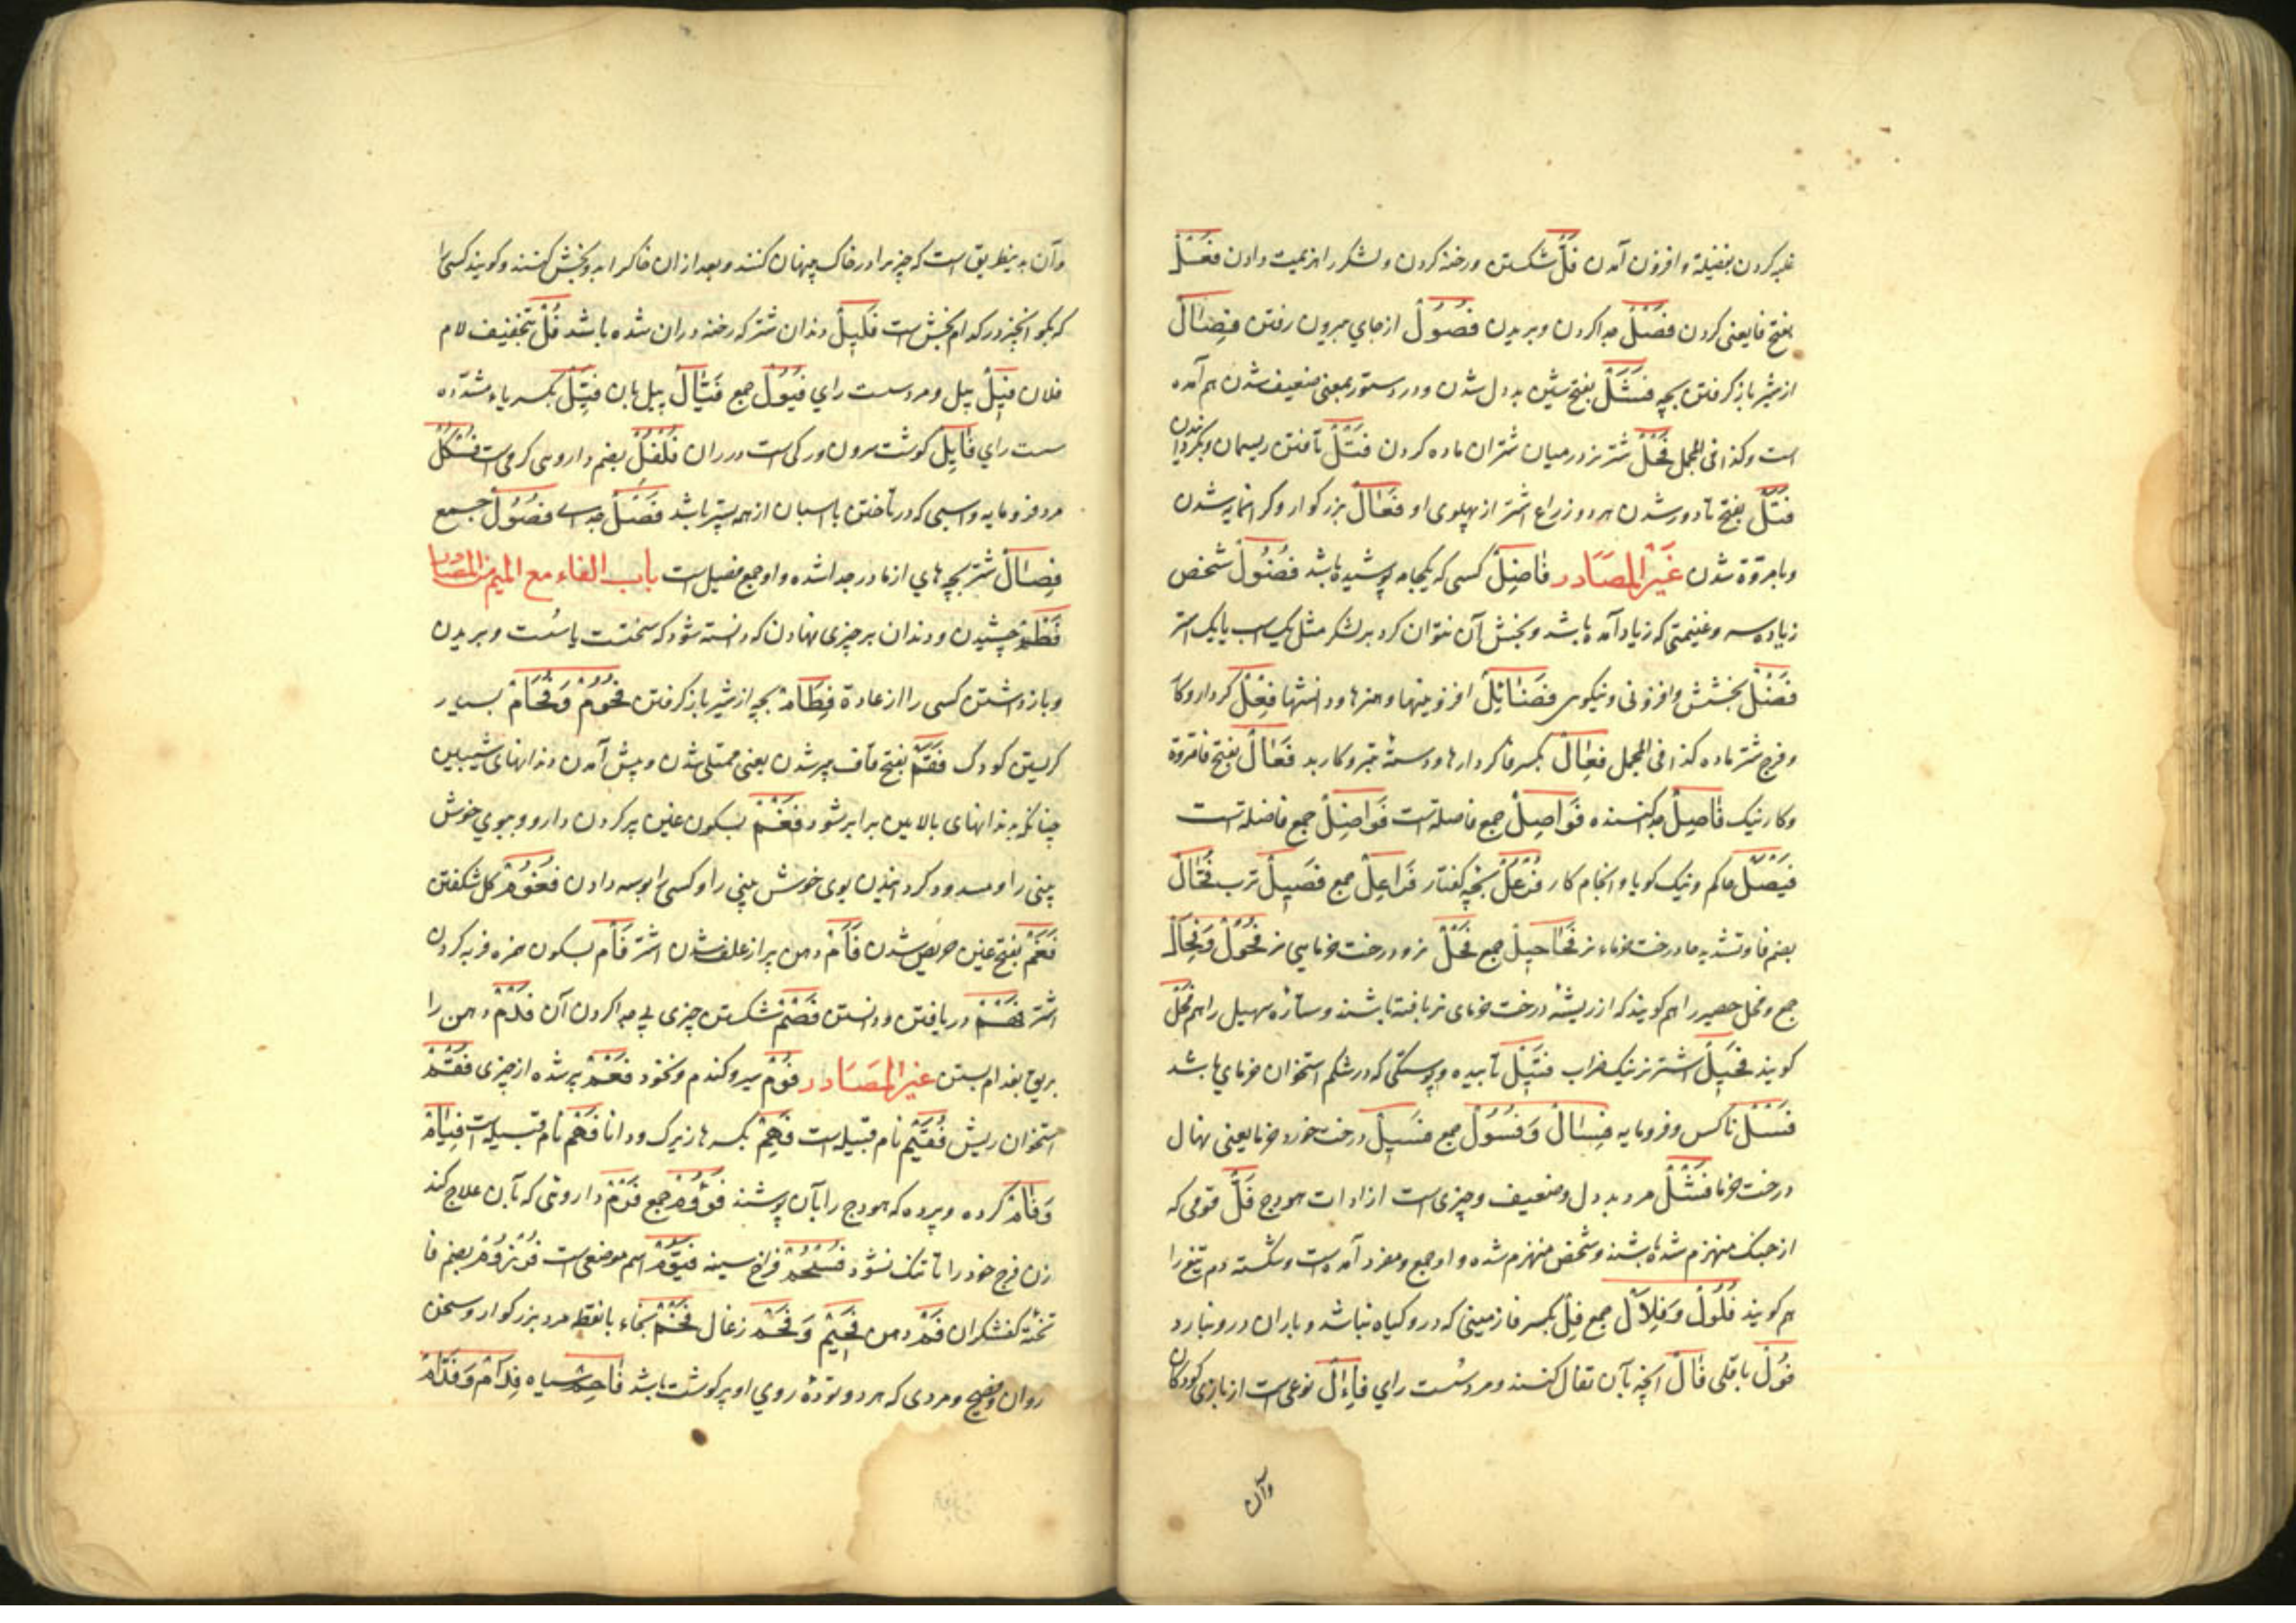 غلبه کردن بفضیلة و افزون آمدن فَلٌّ شکستن و رخنه کردن و لشکر را هزیمت دادن فَعْلٌ
بفتح فا یعنی کردن فَصْلٌ جدا کردن و بریدن فُصُولٌ از جای بیرون رفتن فِصَالٌ
از شیر باز کرفتن بچه فَشَلٌ بفتح شین بد دل شدن و در دستور بمعنی ضعیف شدن هم آمده
است و کذا فی المجمل فَحْلٌ شتر نر در میان شتران ماده کردن فَتْلٌ تافتن ریسمان و بکردانیدن
فَتَلٌ بفتح تا دور شدن هر دو ذراع اشتر از پهلوی او فَعَالٌ بزرکوار و کرانمایه شدن
و با مروّة شدن غَیْرُ المَصَادر فَاضِلٌ کسی که یکجامه پوشیده باشد فُضُولٌ شخص
زیاده سر و غنیمتی که زیاد آمده باشد و بخش آن نتوان کرد بر لشکر مثل یک اسب یا یک اشتر
فَضْلٌ بخشش و افزونی و نیکوی فَضَائِلٌ افزونیها و هنرها و دانشها فِعْلٌ کردار و کار
و فرج شتر ماده کذا فی المجمل فِعَالٌ بکسر فا کردارها و دستهٔ تبر و کار بد فَعَالٌ بفتح فا مروّة
و کار نیک فَاصِلٌ جدا کننده فَوَاصِلٌ جمع فاصله است فَوَاضِلٌ جمع فاضله است
فَیْصَلٌ حاکم و نیک کویا و انجام کار فُرْعُلٌ بچه کفتار فَرَاعِلٌ جمع فَصِیلٌ ترب فُحَّالٌ
بضم فا و تشدید حا درخت خرماء نر فَحَاحِیلٌ جمع فَحْلٌ نر و درخت خرمایی نر فُحُولٌ وَفِحَالٌ
جمع و فحل حصیر را هم کویند که از ریشهٔ درخت خرمای نر بافته باشند و ستارهٔ سهیل را هم فَحْلٌ
کویند فَحِیلٌ اشتر نر نیک ضراب فَتِیلٌ تابیده و پوستکی که در شکم استخوان خرمای باشد
فَسْلٌ ناکس و فرومایه فِسَالٌ وَفُسُولٌ جمع فَسِیلٌ درخت خورد خرما یعنی نهال
درخت خرما فَشْلٌ مرد بد دل و ضعیف و چیزی است از ادات هودج فَلٌّ قومی که
از جنک منهزم شده باشند و شخص منهزم شده و او جمع و مفرد آمده است و شکسته دم تیغ را
هم کویند فُلُولٌ وَفِلَالٌ جمع فِلٌّ بکسر فا زمینی که درو کیاه نباشد و باران درو نبارد
فُولٌ باقلی فَالٌ آنچه بآن تفال کنند و مرد سُست رای فِئَالٌ نوعی است از بازی کودکان
وآن
وآن بدینطریق است که چیزی را در خاک پنهان کنند و بعد از ان خاک را بدو بخش کنند و کویند کسی را
که بکو آنچیز در کدام بخش است فَلِیلٌ دندان شتر که رخنه دران شده باشد فُلٌ بتخفیف لام
فلان فِیلٌ پیل و مرد سست رای فُیُولٌ جمع فَیَّالٌ پیل بان فَیِّلٌ بکسر یاء مشدّده
سست رای فَایِلٌ کوشت سرون و رکی است در ران فُلْفُلٌ بضم داروی کرمی است فُسْکُلٌ
مرد فرومایه و اسبی که در تاختن با اسبان از همه پستر باشد فَصْلٌ جدای فُصُولٌ جمع
فِصَالٌ شتر بچه های از مادر جدا شده و او جمع فصیل است باب الفاء مع المیم من المصادر
فَطْمٌ چشیدن و دندان بر چیزی نهادن که دانسته شود که سختست یا سُست و بریدن
و باز داشتن کسی را از عادة فِطَامٌ بچه از شیر باز کرفتن فُحُومٌ وَفُحَامٌ بسیار
کریستن کودک فَقَمٌ بفتح قاف پر شدن یعنی ممتلی شدن و پیش آمدن دندانهای شیبین
چنانکه بدندانهای بالایین برابر شود فَغْمٌ بسکون غین پر کردن دارو و بوی خوش
بینی را و مسدود کردانیدن بوی خوش بینی را و کسی را بوسه دادن فُغُومٌ کل شکفتن
فَغَمٌ بفتح غین حریص شدن فَأَمٌ دهن پر از علف شدن اشتر فَأْمٌ بسکون همزه فربه کردن
اشتر فَهْمٌ دریافتن و دانستن فَصْمٌ شکستن چیزی بی جدا کردن آن فَدْمٌ دهن را
بریق بفدام بستن غیر المَصَادر فُومٌ سیر و کندم و نخود فَعْمٌ پر شده از چیزی فُقْمٌ
استخوان ریش فُقَیْمٌ نام قبیله است فَهِمٌ بکسر ها زیرک و دانا فَهْمٌ نام قبیله است فِیَامٌ
وَفِئَامٌ کروه و پرده که هودج را بآن پوشند فُؤُومٌ جمع فَرْمٌ داروئی که بآن علاج کند
زن فرج خود را تا تنک نشود فُسْحُمٌ فراخ سینه فَیُّومٌ اسم موضعی است فُرْزُومٌ بضم فا
تختهٔ کفشکران فَمٌ دهن فَحِیمٌ وَفَحْمٌ زغال فَخْمٌ بخاء با نقطه مرد بزرکوار و سخن
روان و فصیح و مردی که هر دو تودهٔ روی او پر کوشت باشد فَاحِمٌ سیاه فِدَامٌ وَفَدَّامٌ